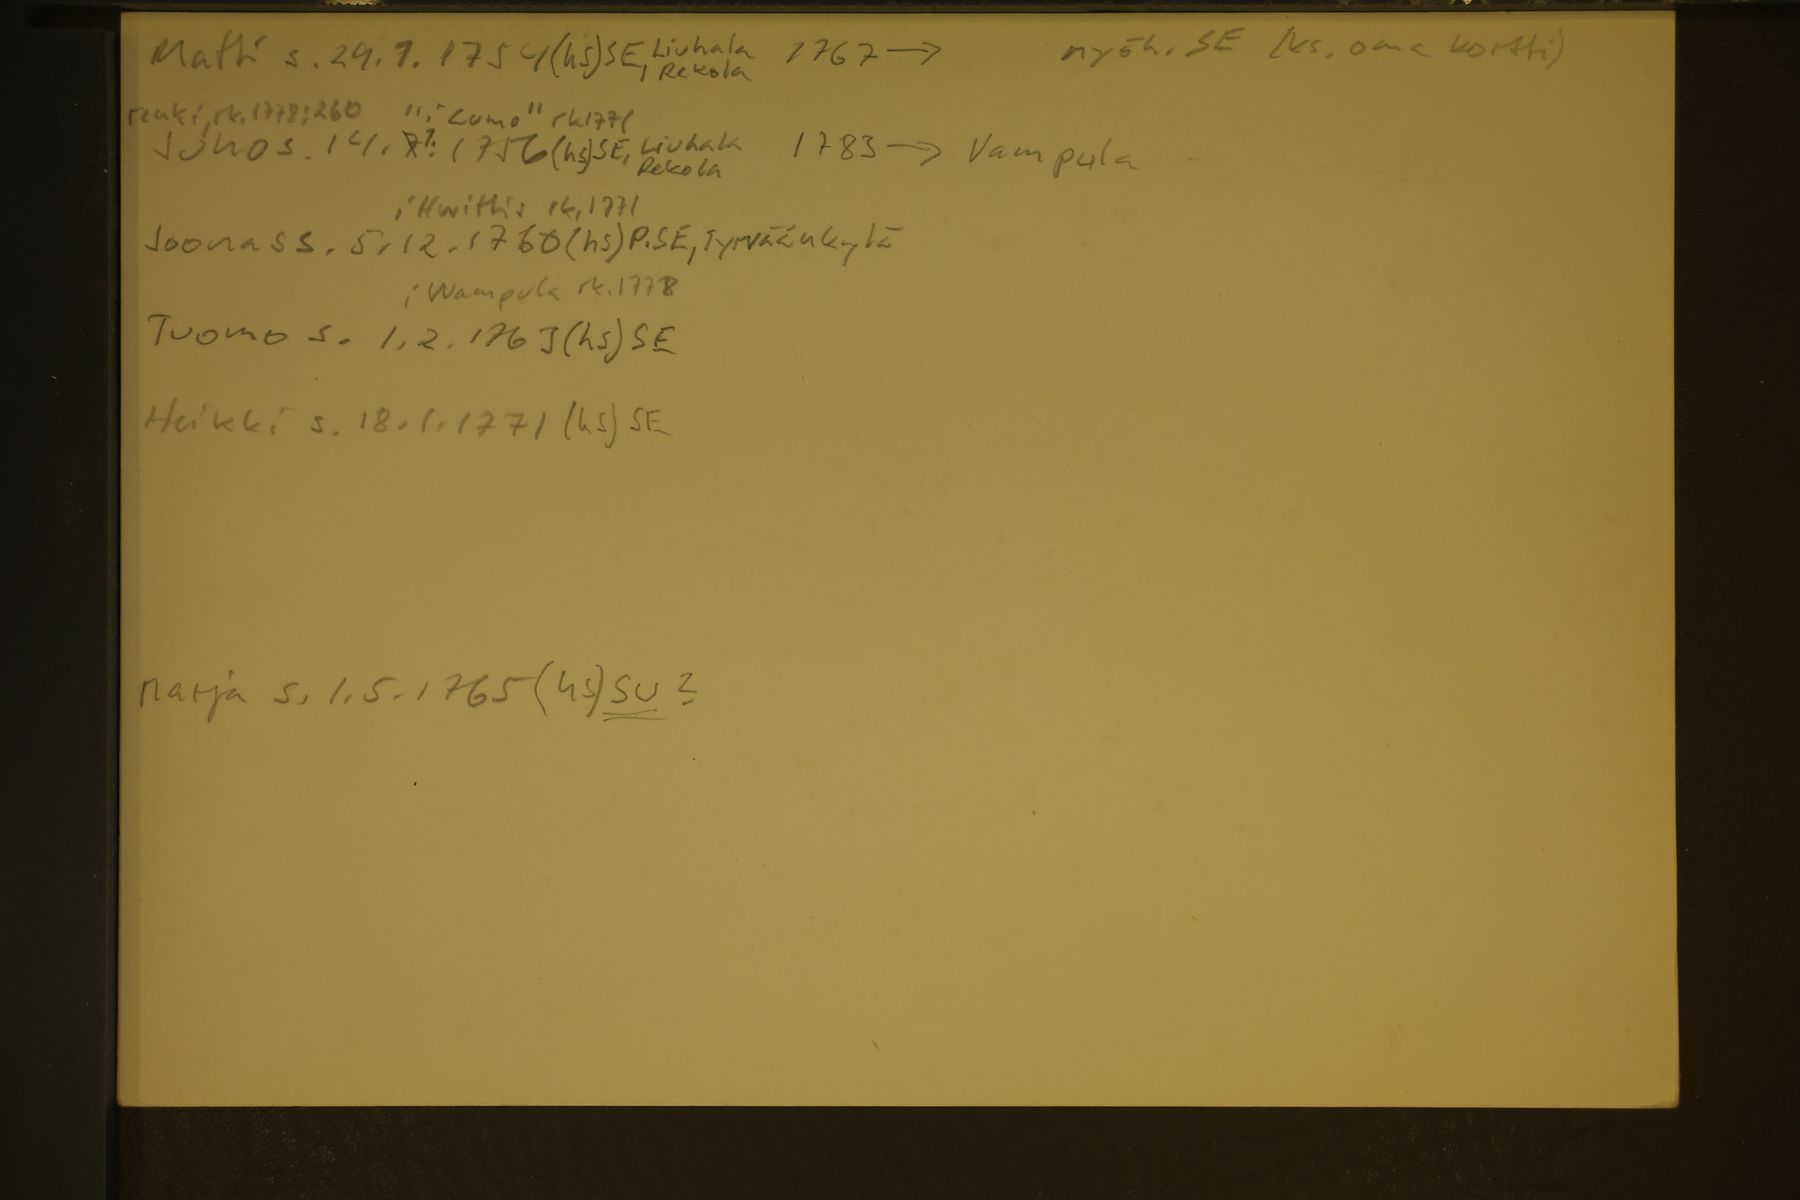 Matti s. 29.9.1754 (hs) SE, Liuhala Rekola 1767 → myöh. SE (ks. oma kortti)
renki, rk. 1778:260 "i Cumo" rk 1771
Juho s. 14.7?.1756 (hs) SE, Liuhala Rekola 1783 → Vampula
i Huittis rk. 1771
Joonas s. 5.12.1760 (hs) P.SE, Tyrväänkylä
i Wampula rk. 1778
Tuomo s. 1.2.1763 (hs) SE
Heikki s. 18.1.1771 (hs) SE
Marja s. 1.5.1765 (hs) SU ?